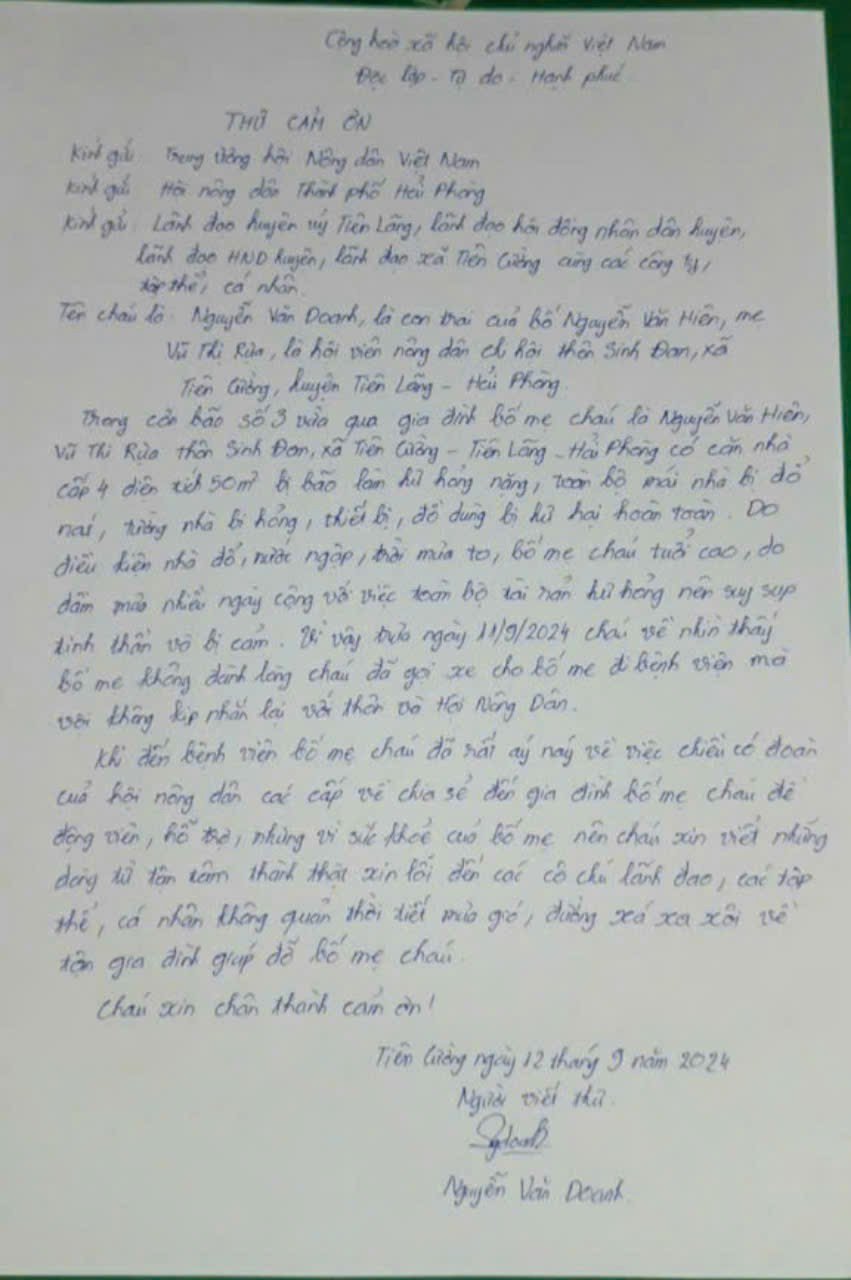 Cộng hoà xã hội chủ nghĩa Việt Nam
Độc lập - Tự do - Hạnh phúc
THƯ CẢM ƠN
Kính gửi: Trung ương hội Nông dân Việt Nam
Kính gửi: Hội nông dân Thành phố Hải Phòng
Kính gửi: Lãnh đạo huyện uỷ Tiên Lãng, lãnh đạo hội đồng nhân dân huyện,
lãnh đạo HND huyện, lãnh đạo xã Tiên Cường cùng các công ty,
tập thể, cá nhân.
Tên cháu là: Nguyễn Văn Doanh, là con trai của bố Nguyễn Văn Hiên, mẹ
Vũ Thị Rứa, là hội viên nông dân chi hội thôn Sinh Đan, xã
Tiên Cường, huyện Tiên Lãng - Hải Phòng.
Trong cơn bão số 3 vừa qua gia đình bố mẹ cháu là Nguyễn Văn Hiên,
Vũ Thị Rứa thôn Sinh Đan, xã Tiên Cường - Tiên Lãng - Hải Phòng có căn nhà
cấp 4 diện tích 50m² bị bão làm hư hỏng nặng, toàn bộ mái nhà bị đổ
nát, tường nhà bị hỏng, thiết bị, đồ dùng bị hư hại hoàn toàn. Do
điều kiện nhà đổ, nước ngập, trời mưa to, bố mẹ cháu tuổi cao, do
dầm mưa nhiều ngày cộng với việc toàn bộ tài sản hư hỏng nên suy sụp
tinh thần và bị cảm. Vì vậy trưa ngày 11/9/2024 cháu về nhìn thấy
bố mẹ không đành lòng cháu đã gọi xe cho bố mẹ đi bệnh viện mà
vội không kịp nhắn lại với thôn và Hội Nông Dân.
Khi đến bệnh viện bố mẹ cháu đã rất áy náy về việc chiều có đoàn
của hội nông dân các cấp về chia sẻ đến gia đình bố mẹ cháu để
động viên, hỗ trợ, nhưng vì sức khoẻ của bố mẹ nên cháu xin viết những
dòng từ tận tâm thành thật xin lỗi đến các cô chú lãnh đạo, các tập
thể, cá nhân không quản thời tiết mưa gió, đường xá xa xôi về
tận gia đình giúp đỡ bố mẹ cháu.
Cháu xin chân thành cảm ơn!
Tiên Cường ngày 12 tháng 9 năm 2024
Người viết thư.
Nguyễn Văn Doanh